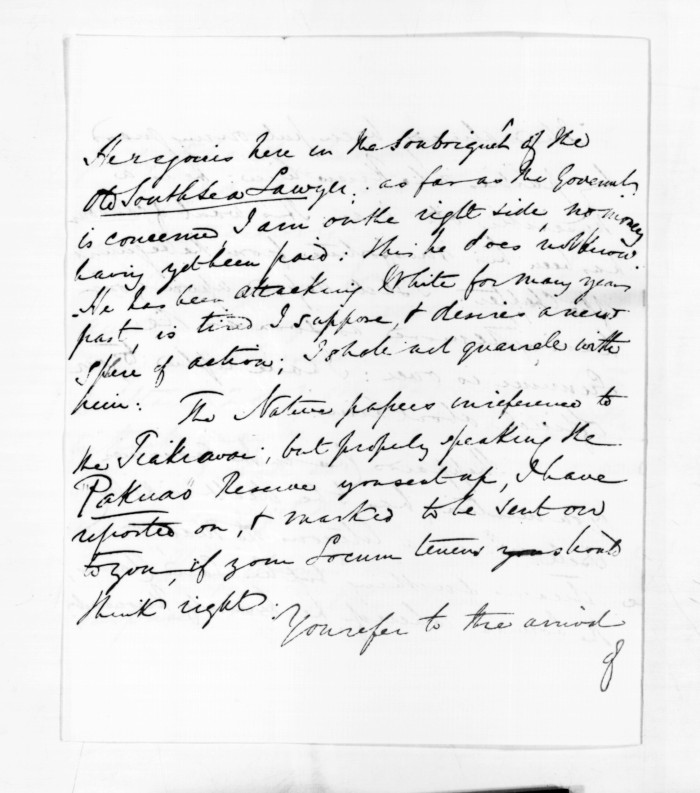 He rejoices here in the Soubriquet of the
Old South Sea Lawyer. as far as the Governmt.
is concerned, I am on the right side, no money
having yet been paid: this he does not know.
He has been attacking White for many years
past, is tired I suppose, & desires a new
sphere of action; I shall not quarrel with
him: The Native papers in reference to
the Tiakiawai; but properly speaking the
"Pakuao" Reserve you sent up, I have
reported on, & marked to be sent on
to you, if your Locum tenens you should
think right.
You refer to the arrival
of